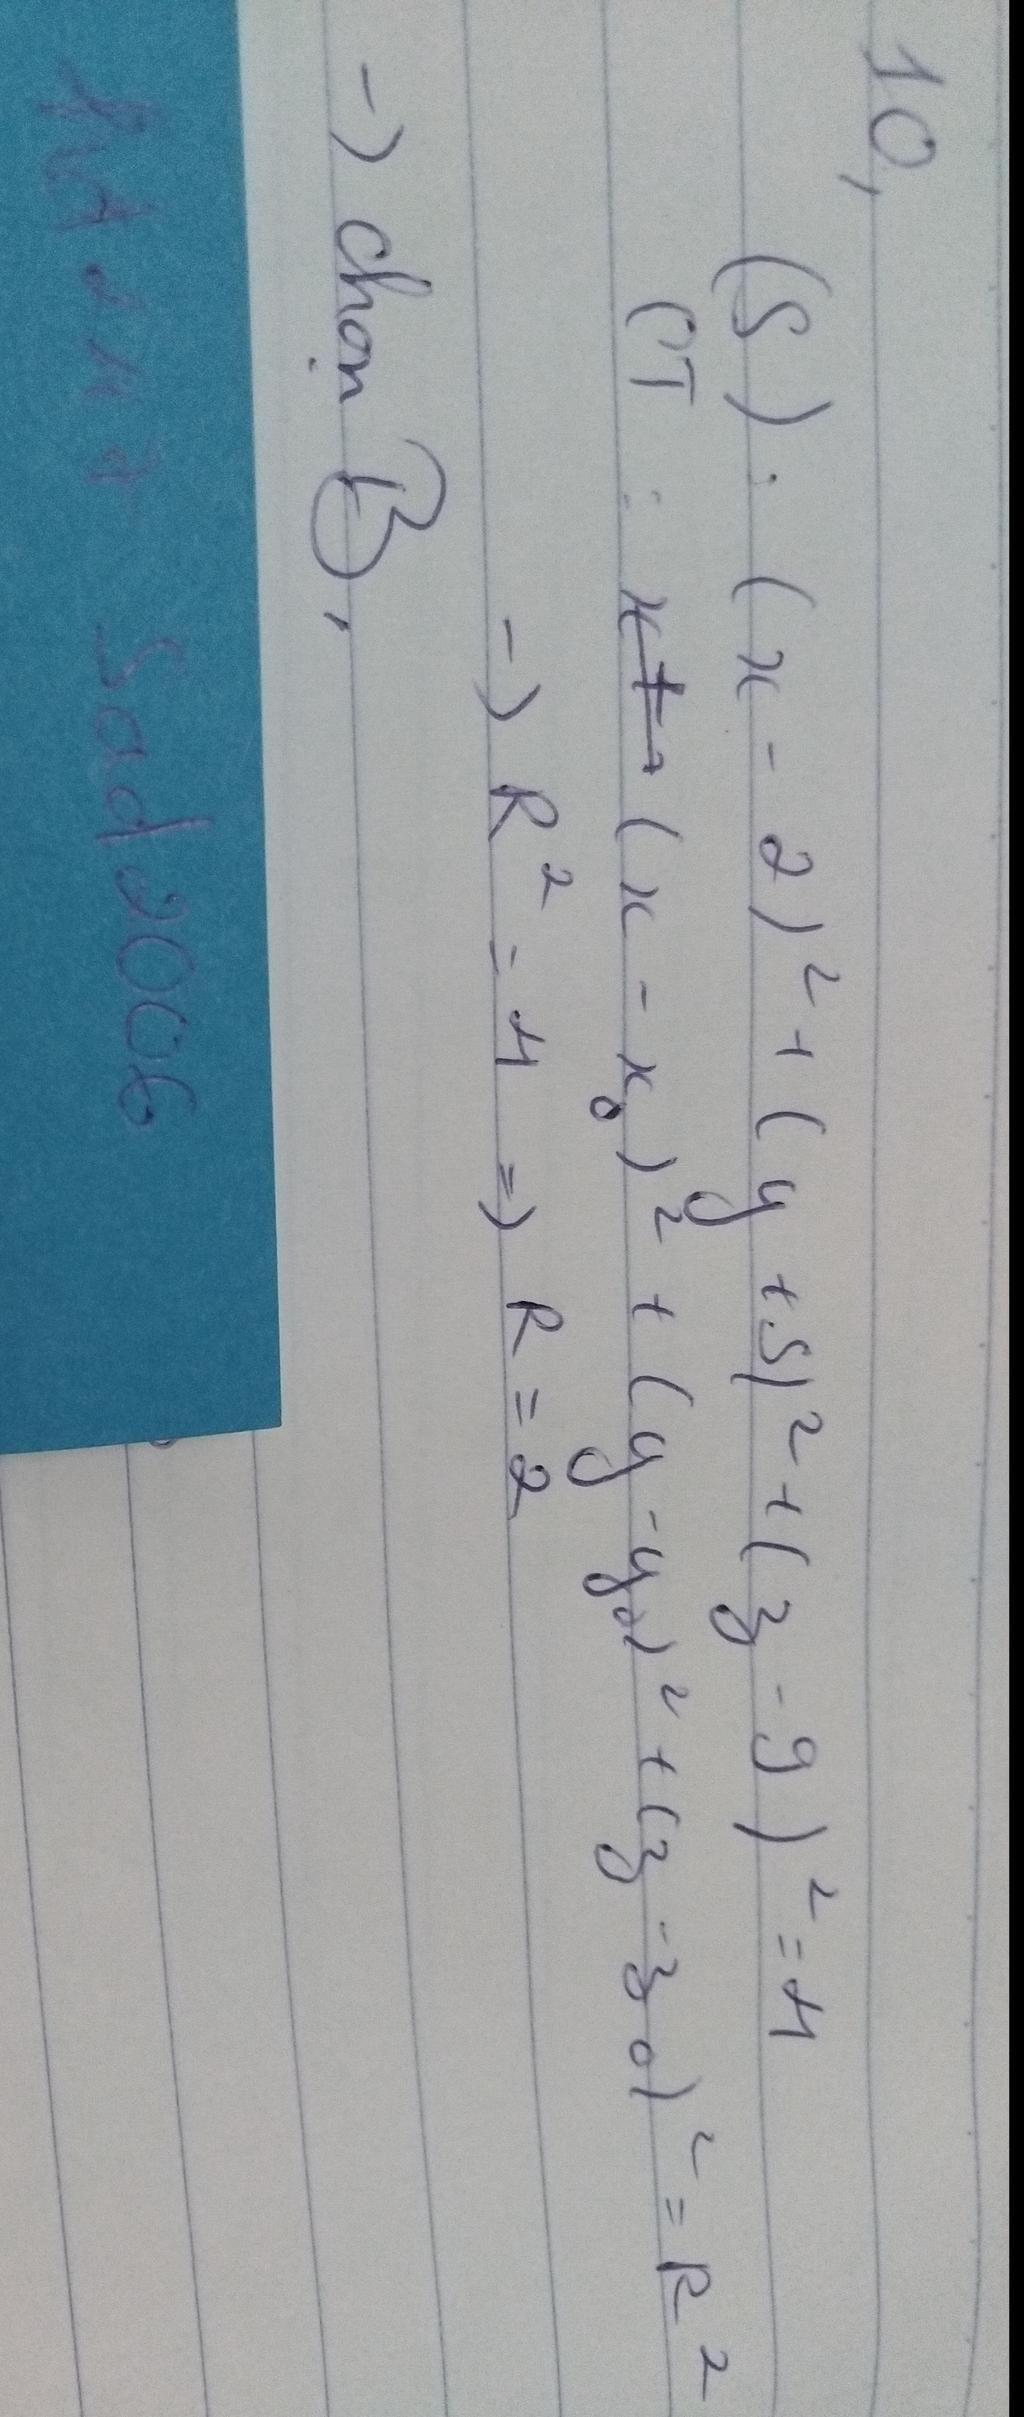 10,
(S) : (x - 2)² + (y + 5)² + (z - 9)² = 4
PT : (x - x₀)² + (y - y₀)² + (z - z₀)² = R²
-) R² = 4 =) R = 2
-) chọn B,
Sad2006